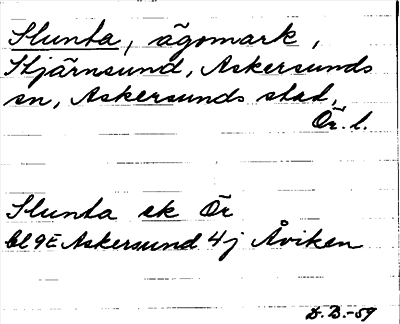 Slunta, ägomark,
Stjärnsund, Askersunds
sn, Askersunds stad,
Ör. l.
Slunta ek Ör
bl 9E Askersund 4j Åviken
D.B.-59